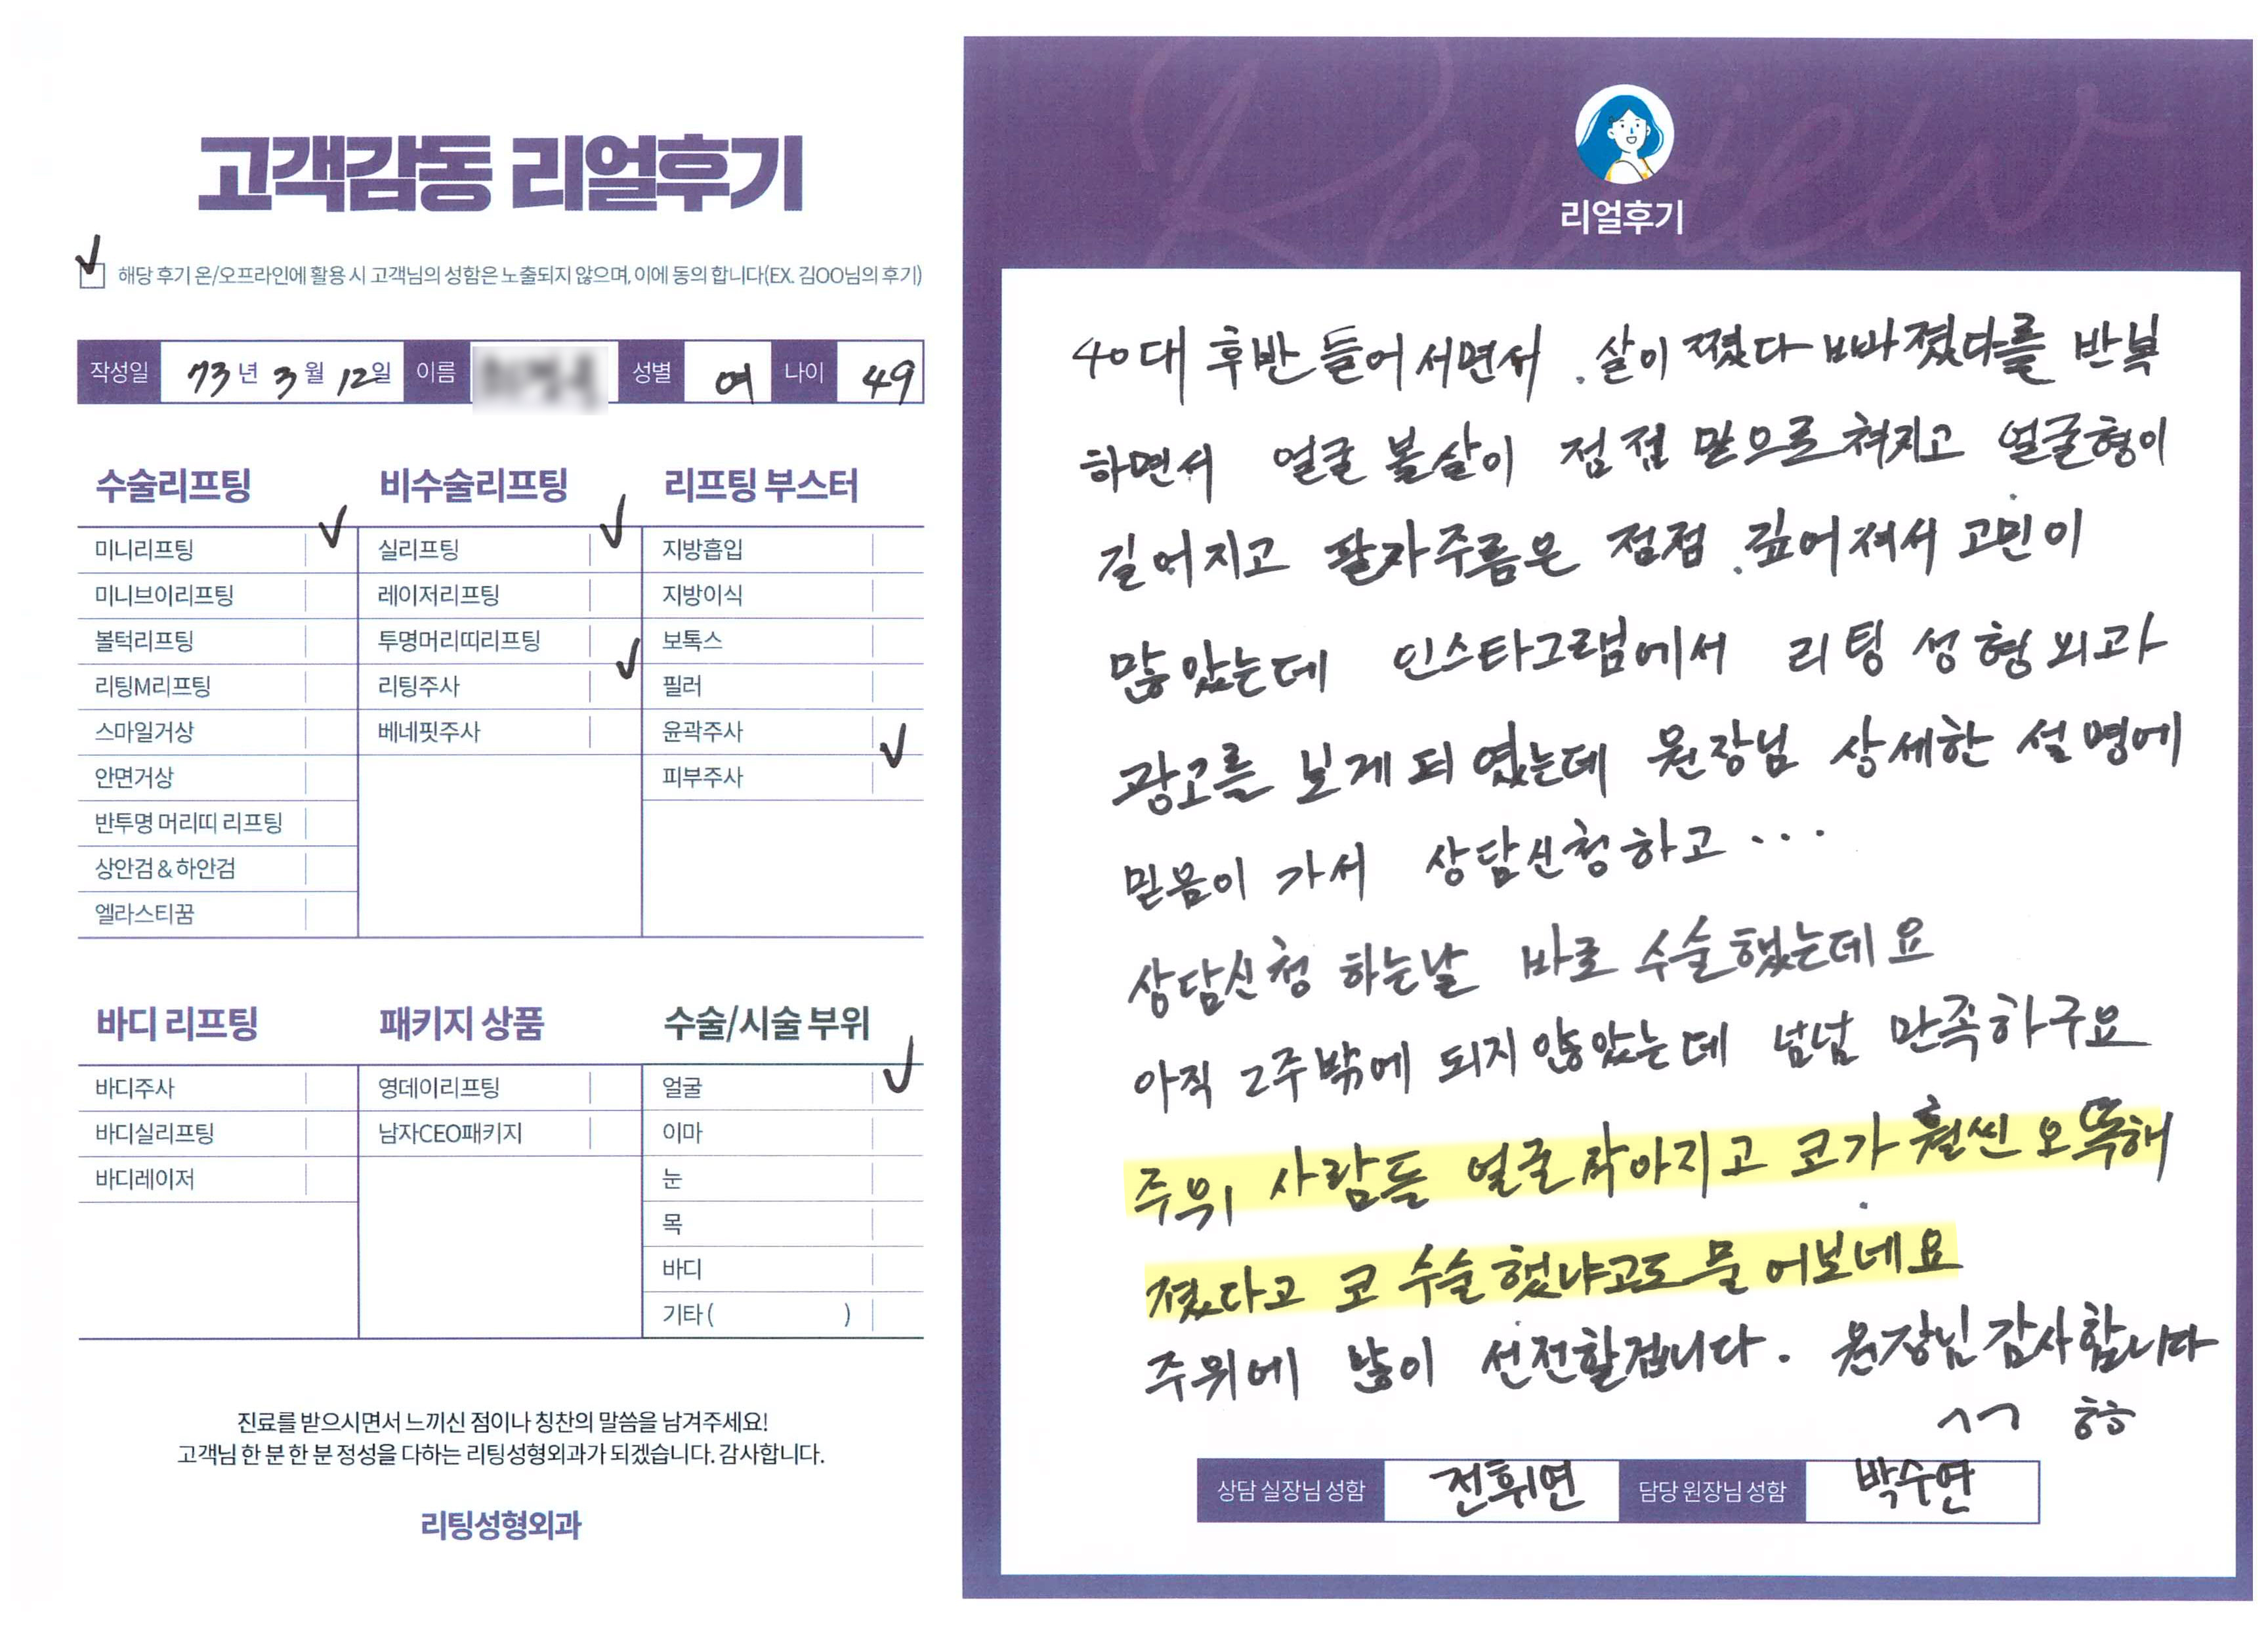 고객감동 리얼후기
해당 후기 온/오프라인에 활용 시 고객님의 성함은 노출되지 않으며, 이에 동의 합니다(EX. 김OO님의 후기)
작성일 73년 3월 12일 이름 성별 여 나이 49
수술리프팅 비수술리프팅 리프팅 부스터
미니리프팅 실리프팅 지방흡입
미니브이리프팅 레이저리프팅 지방이식
볼턱리프팅 투명머리띠리프팅 보톡스
리팅M리프팅 리팅주사 필러
스마일거상 베네핏주사 윤곽주사
안면거상 피부주사
반투명 머리띠 리프팅
상안검 & 하안검
엘라스티꿈
바디 리프팅 패키지 상품 수술/시술 부위
바디주사 영데이리프팅 얼굴
바디실리프팅 남자CEO패키지 이마
바디레이저 눈
목
바디
기타 ( )
진료를 받으시면서 느끼신 점이나 칭찬의 말씀을 남겨주세요!
고객님 한 분 한 분 정성을 다하는 리팅성형외과가 되겠습니다. 감사합니다.
리팅성형외과
Review
리얼후기
40대 후반 들어서면서 살이 쪘다 빠졌다를 반복
하면서 얼굴 볼살이 점점 밑으로 쳐지고 얼굴형이
길어지고 팔자주름은 점점 깊어져서 고민이
많았는데 인스타그램에서 리팅 성형외과
광고를 보게되였는데 원장님 상세한 설명에
믿음이 가서 상담신청하고 ...
상담신청 하는날 바로 수술했는데요
아직 2주밖에 되지 않았는데 넘넘 만족하구요
주위 사람들 얼굴작아지고 코가 훨씬 오똑해
졌다고 코 수술했냐고도 물어보네요
주위에 많이 선전할겁니다. 원장님감사합니다
^^ ㅎㅎ
상담 실장님 성함 전휘연 담당 원장님 성함 박수연